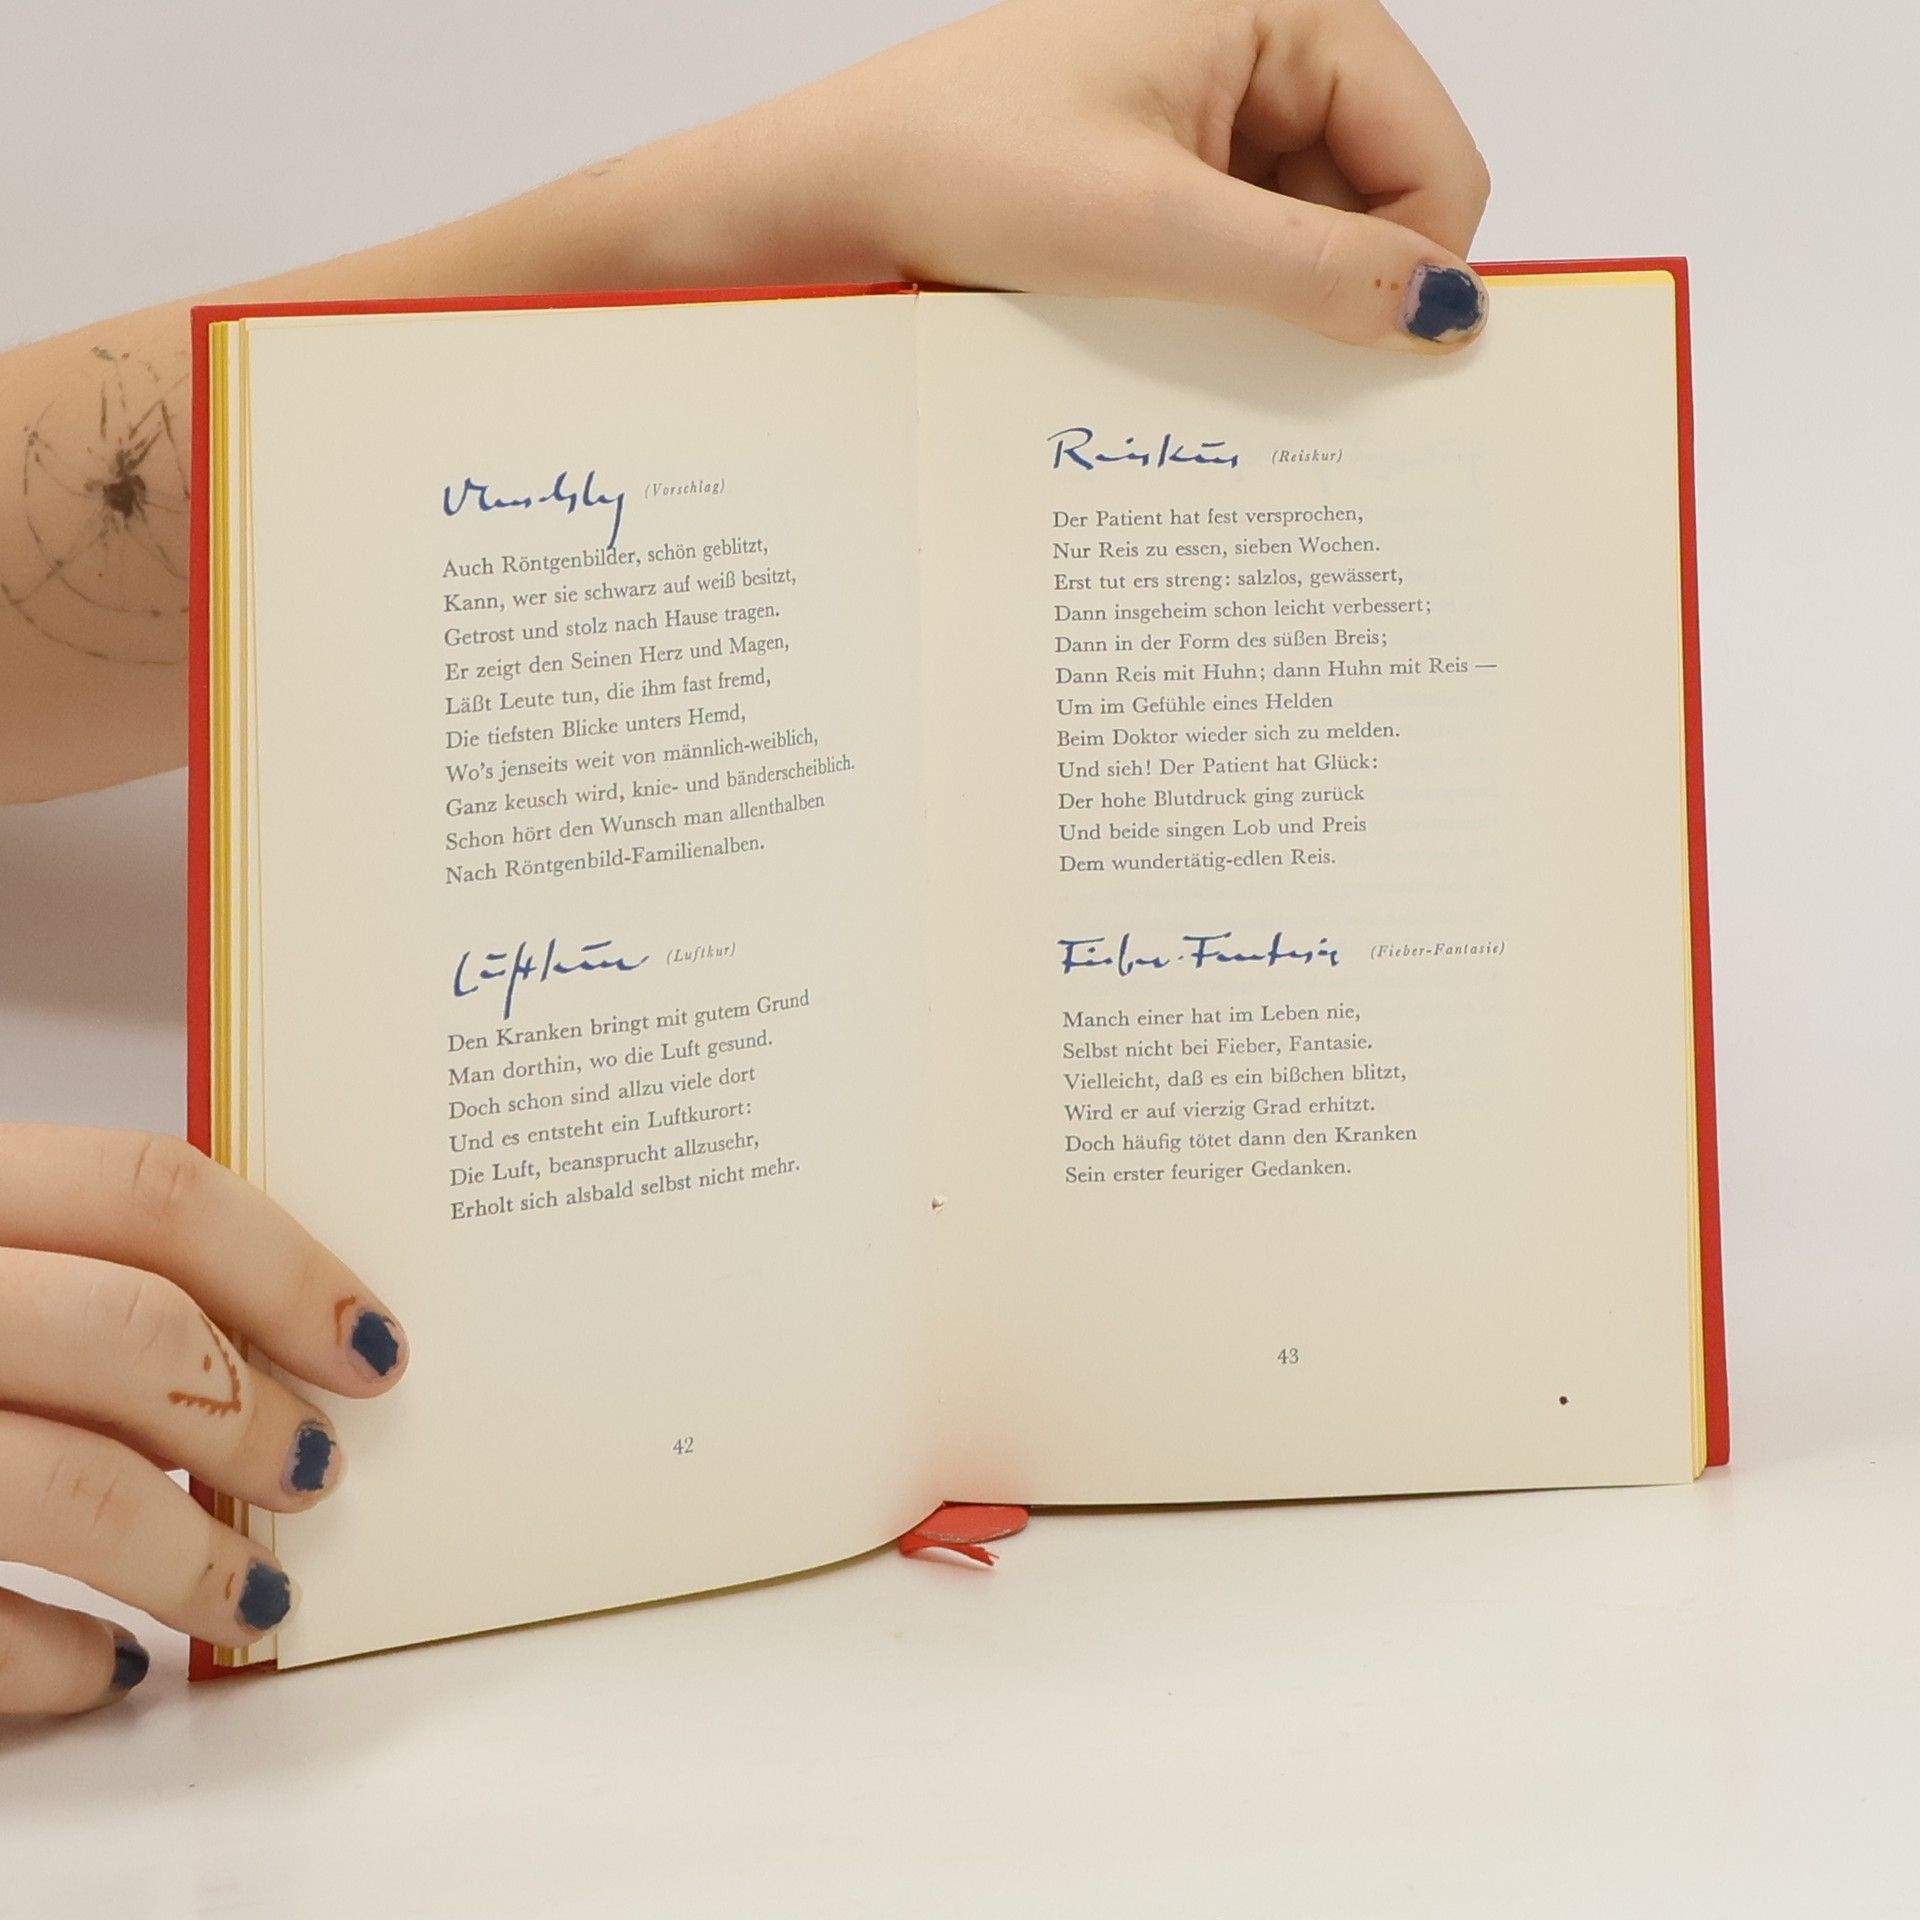 Vorschlag (Vorschlag)
Auch Röntgenbilder, schön geblitzt,
Kann, wer sie schwarz auf weiß besitzt,
Getrost und stolz nach Hause tragen.
Er zeigt den Seinen Herz und Magen,
Läßt Leute tun, die ihm fast fremd,
Die tiefsten Blicke unters Hemd,
Wo's jenseits weit von männlich-weiblich,
Ganz keusch wird, knie- und bänderscheiblich.
Schon hört den Wunsch man allenthalben
Nach Röntgenbild-Familienalben.
Luftkur (Luftkur)
Den Kranken bringt mit gutem Grund
Man dorthin, wo die Luft gesund.
Doch schon sind allzu viele dort
Und es entsteht ein Luftkurort:
Die Luft, beansprucht allzusehr,
Erholt sich alsbald selbst nicht mehr.
42
Reiskur (Reiskur)
Der Patient hat fest versprochen,
Nur Reis zu essen, sieben Wochen.
Erst tut ers streng: salzlos, gewässert,
Dann insgeheim schon leicht verbessert;
Dann in der Form des süßen Breis;
Dann Reis mit Huhn; dann Huhn mit Reis —
Um im Gefühle eines Helden
Beim Doktor wieder sich zu melden.
Und sieh! Der Patient hat Glück:
Der hohe Blutdruck ging zurück
Und beide singen Lob und Preis
Dem wundertätig-edlen Reis.
Fieber-Fantasie (Fieber-Fantasie)
Manch einer hat im Leben nie,
Selbst nicht bei Fieber, Fantasie.
Vielleicht, daß es ein bißchen blitzt,
Wird er auf vierzig Grad erhitzt.
Doch häufig tötet dann den Kranken
Sein erster feuriger Gedanken.
43